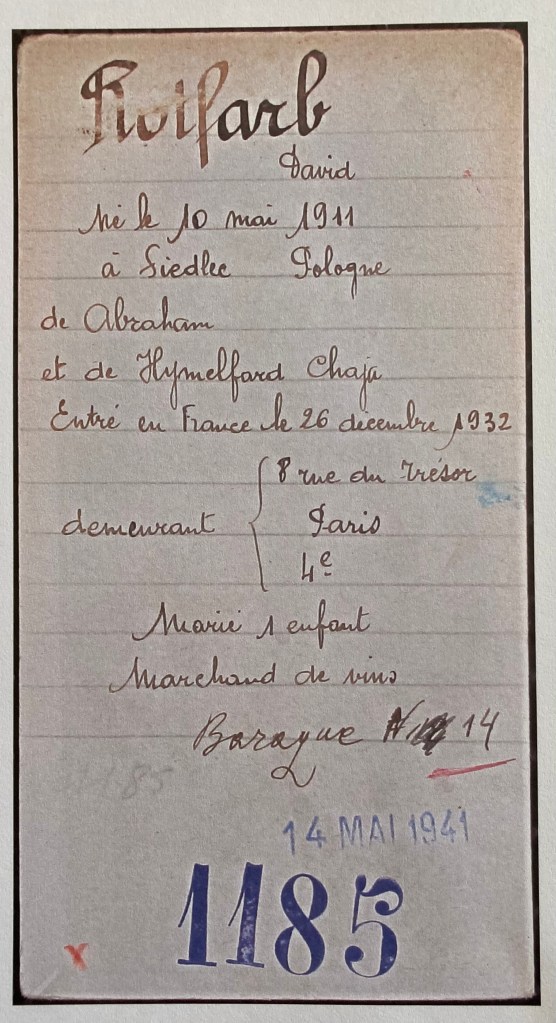 Rotfarb
David
Né le 10 mai 1911
à Siedlec Pologne
de Abraham
et de Hymelfard Chaja
Entré en France le 26 décembre 1932
8 rue du Trésor
demeurant Paris
4e
Marié 1 enfant
Marchand de vins
Baraque 14
1185
14 MAI 1941
1185